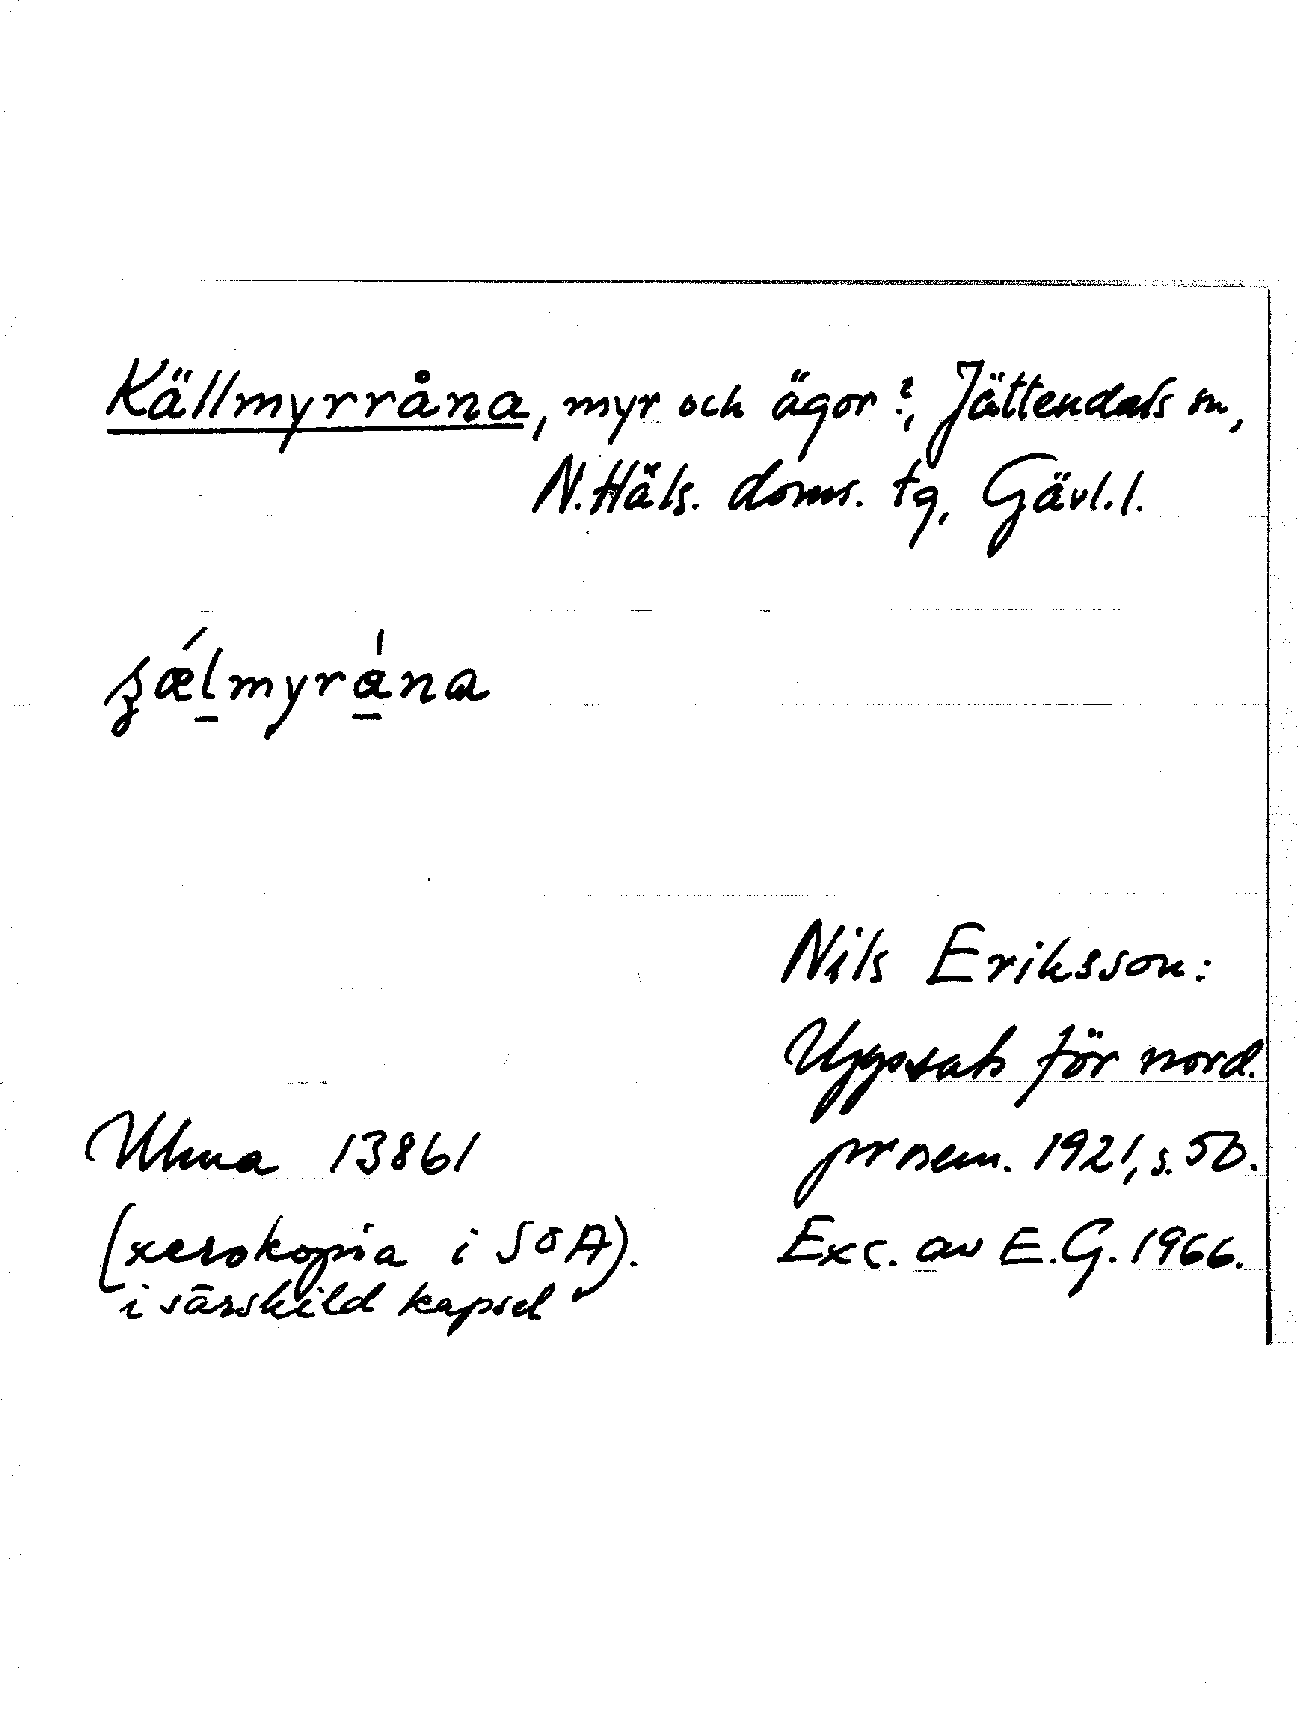 Källmyrråna, myr och ägor?, Jättendals sn,
N. Häls. doms. tg, Gävl. l.
ʂǽl̠myrá̠na
Nils Eriksson:
Uppsats för nord.
prosem. 1921, s. 5b.
Exc. av E.G. 1966.
Ulma 13861
(xerokopia i SOA).
i särskild kapsel